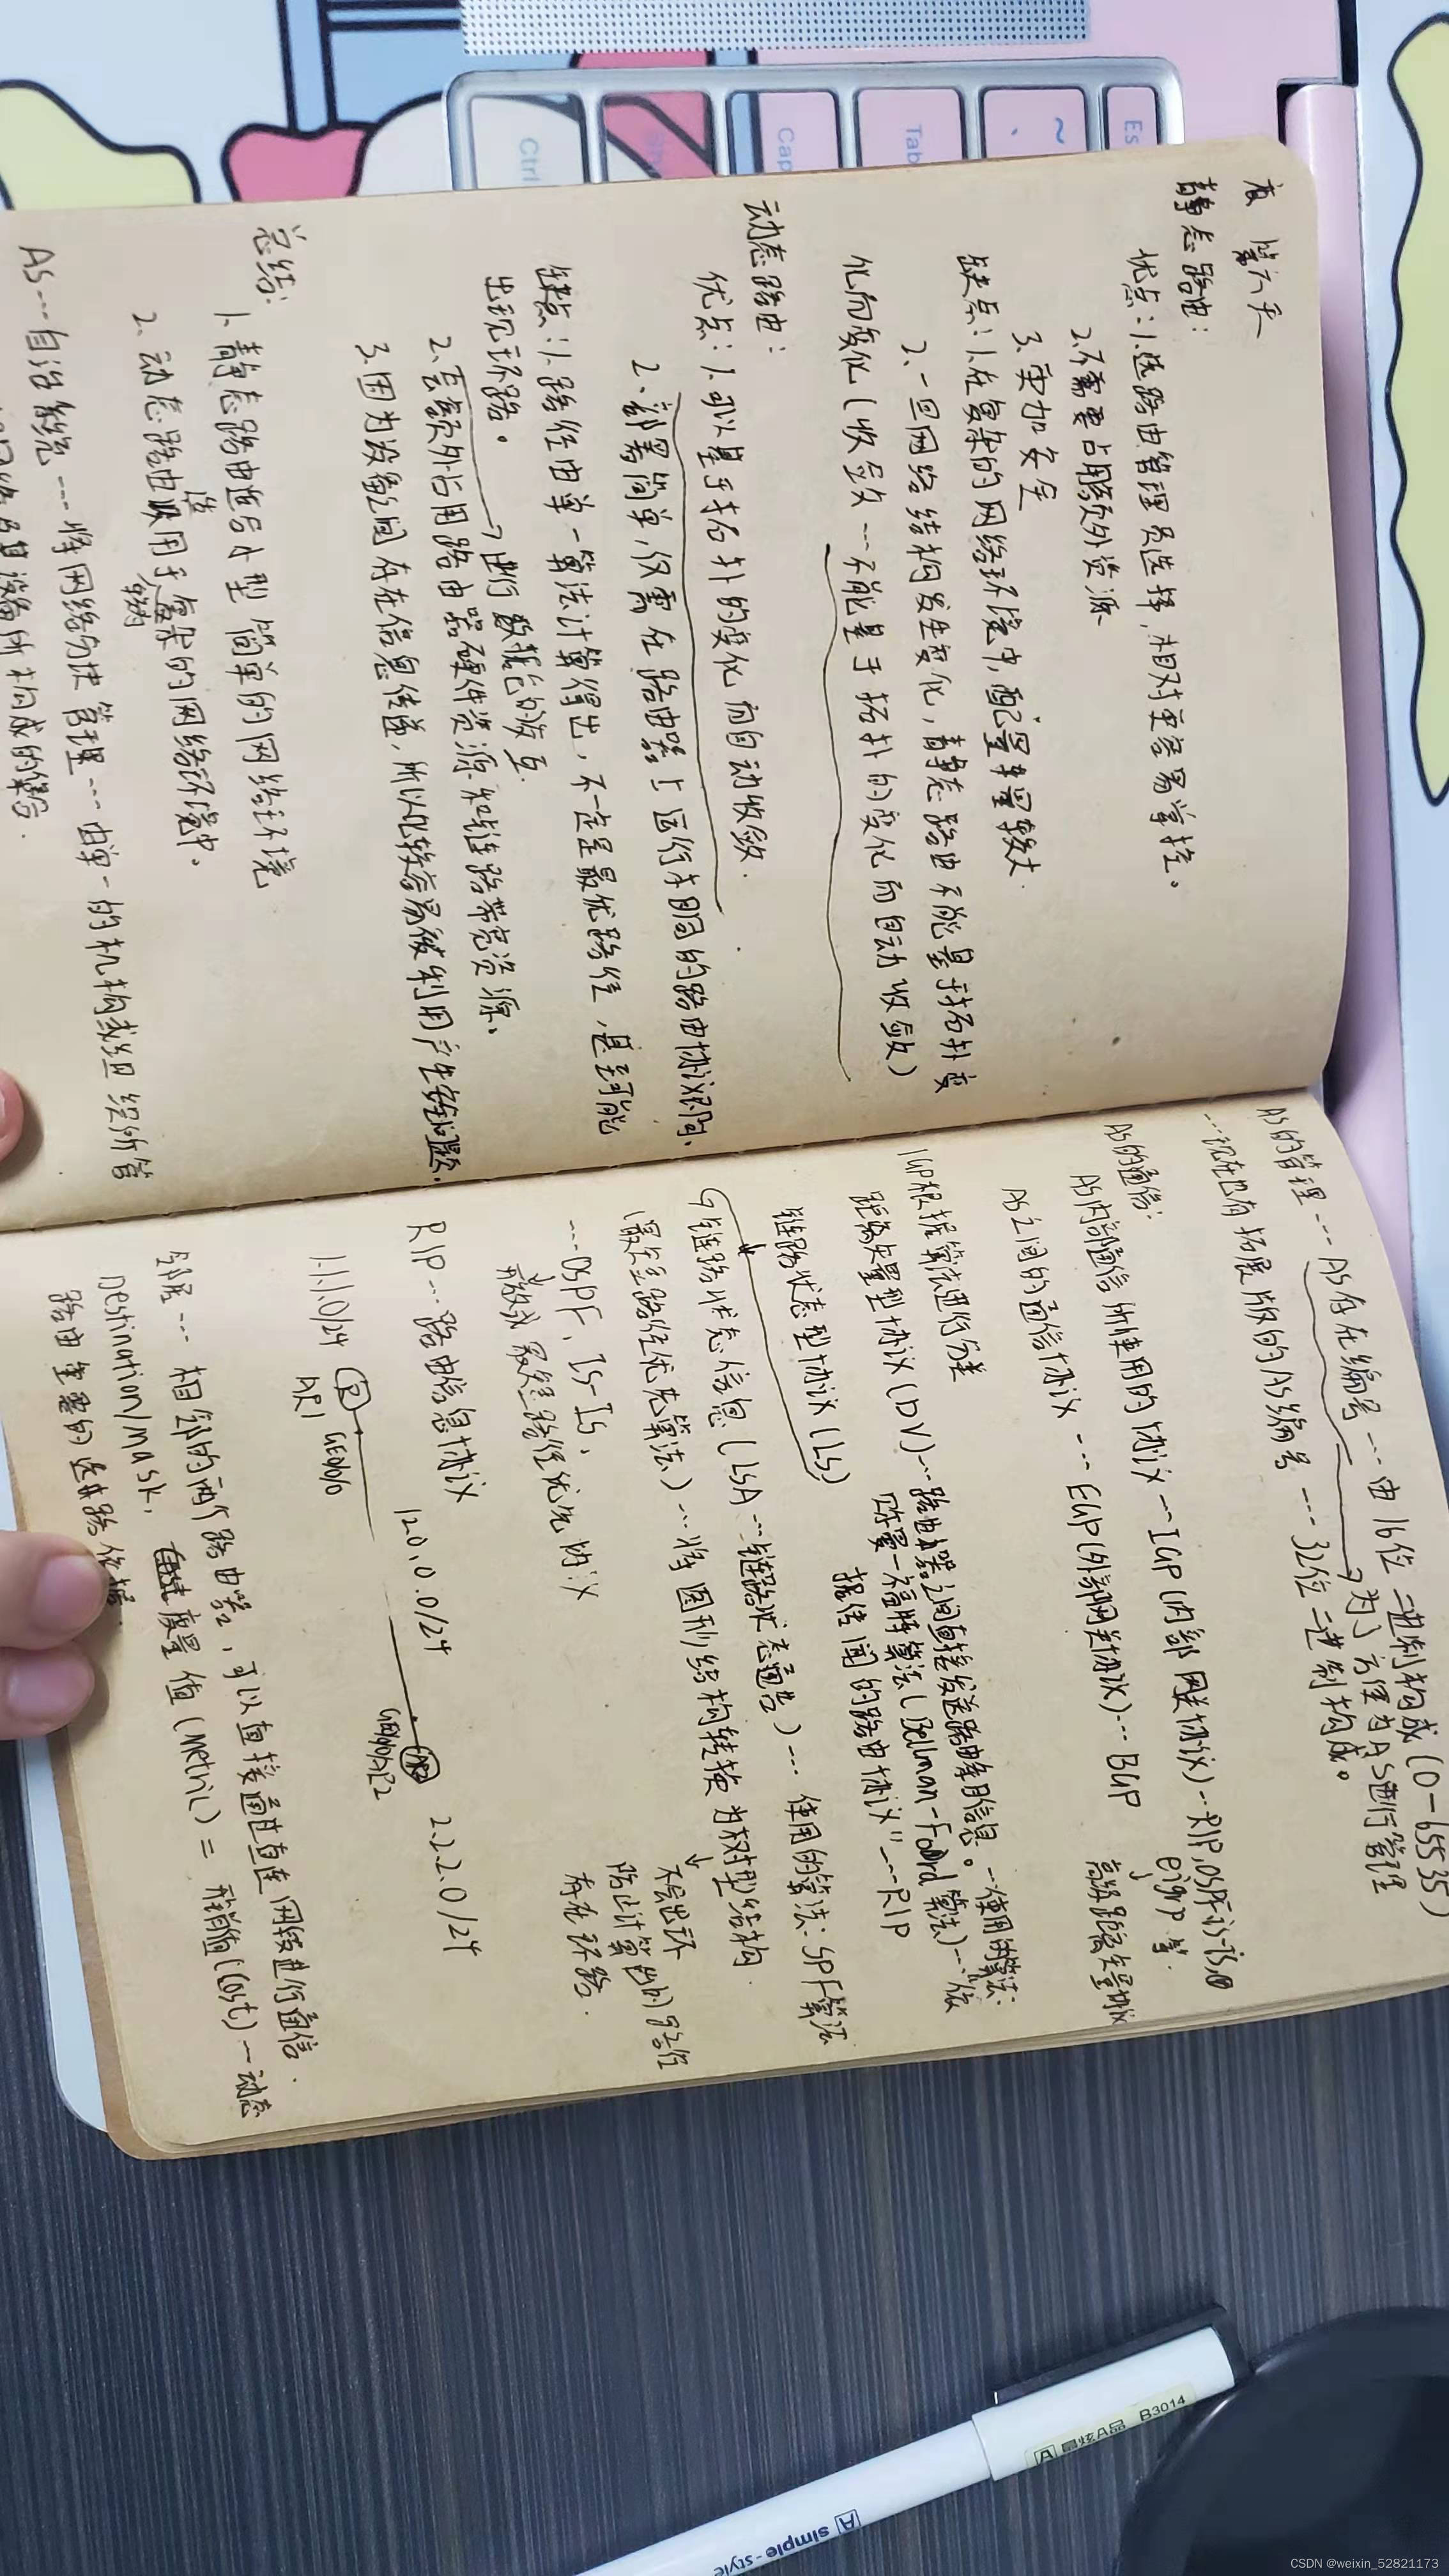 第六天
静态路由:
优点:1.选路由管理员选择,相对更容易掌控。
2.不需要占用额外资源
3.更加安全
缺点:1.在复杂的网络环境中,配置量较大.
2.一旦网络结构发生变化,静态路由不能基于拓扑变
化而变化(收敛---不能基于拓扑的变化而自动收敛)
动态路由:
优点:1.可以基于拓扑的变化而自动收敛.
2.部署简单,仅需在路由器上运行相同的路由协议即可、
缺点:1.路径由单一算法计算得出,不一定是最优路径,甚至可能
出现环路。
→进行数据包的收发
2.会额外占用路由器硬件资源和链路带宽资源。
3.因为设备之间存在信息传递,所以比较容易被利用产生安全问题.
总结:
1.静态路由适合小型简单的网络环境
2.动态路由适用于复杂的网络环境中。
AS---自治系统---将网络分块管理---由单一的机构或组织所管
网络及其设备所构成的集合.
AS的管理---AS存在编号---由16位二进制构成(0-65535)
→为了方便为AS进行管理
---现在也有拓展版的AS编号---32位二进制构成。
AS的通信:
AS内部通信所使用的协议---IGP(内部网关协议)--RIP,OSPF,is-is,
eigrp等.
高级距离矢量协议
AS之间的通信协议---EGP(外部网关协议)---BGP
IGP根据算法进行分类
距离矢量型协议(DV)---路由器之间直接发送路由条目信息。--使用的算法:
贝尔曼-福特算法(Bellman-Ford算法)---"依
据传闻的路由协议"---RIP
链路状态型协议(LS)
链路状态信息(LSA---链路状态通告)---使用的算法:SPF算法
(最短路径优先算法)---将图形结构转换为树型结构.
不会出环
防止计算出的路径
存在环路.
---OSPF,IS-IS,
开放式最短路径优先协议
RIP---路由信息协议
120.0.0/24
2.2.2.0/24
1.1.1.0/24
R
AR1
GE0/0/0
GE0/0/0
AR2
AR2
邻居---相邻的两个路由器,可以直接通过直连网段进行通信.
Destination/mask,度量值(Metric)=开销值(Cost)---动态
路由重要的选路依据.
Ctrl
Cap
Tab
~
、
Es
A 晶炫A品 B3014
A simple-style
CSDN @weixin_52821173